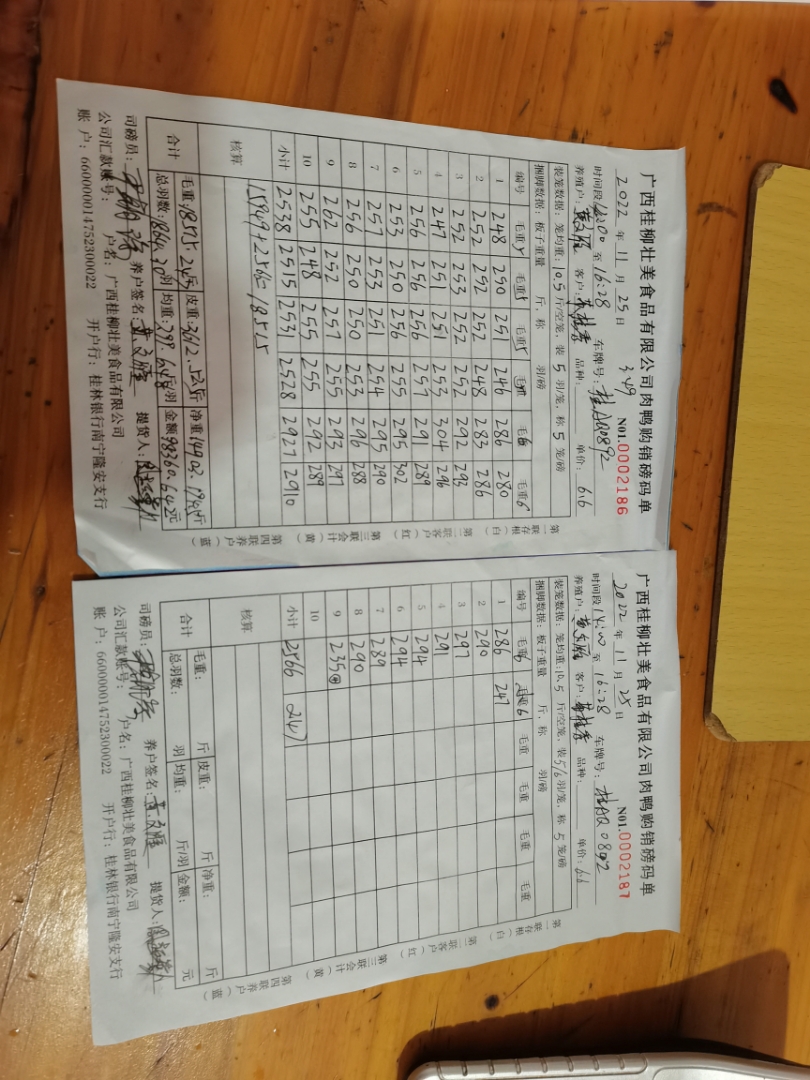 广西桂柳壮美食品有限公司肉鸭购销磅码单
2022 年 11 月 25 日 349 N01.0002186
时间段 至 16:28 车牌号:
养殖户: 客户: 品种: 单价: 6.6
装笼数据: 笼均重: 10.5 斤/空笼, 装 5 羽/笼, 称 5 笼/磅
捆脚数据: 板子重量 斤, 称 羽/磅
编号 毛重5 毛重5 毛重5 毛重 毛重6 毛重6
1 248 250 251 246 286 280
2 252 252 252 248 283 286
3 252 253 252 252 292 293
4 247 251 251 253 304 296
5 256 256 256 257 291 289
6 253 250 256 255 295 302
7 257 253 251 254 295 290
8 256 250 250 253 296 288
9 262 252 257 255 293 297
10 255 248 255 255 292 289
小计 2538 2515 2531 2528 2927 2910
核算 15949+2566=18515
合计 毛重: 斤 皮重: 斤 净重: 斤
总羽数: 羽 均重: 斤/羽 金额: 元
司磅员: 养户签名: 提货人:
公司汇款账号: 户名: 广西桂柳壮美食品有限公司
账 户: 660000014752300022 开户行: 桂林银行南宁隆安支行
第一联存根(白) 第二联客户(红) 第三联会计(黄) 第四联养户(蓝)
广西桂柳壮美食品有限公司肉鸭购销磅码单
2022 年 11 月 25 日 N01.0002187
时间段 至 16:28 车牌号:
养殖户: 客户: 品种: 单价: 6.6
装笼数据: 笼均重: 10.5 斤/空笼, 装 5/6 羽/笼, 称 5 笼/磅
捆脚数据: 板子重量 斤, 称 羽/磅
编号 毛重6 毛重6 毛重 毛重 毛重 毛重
1 286 247
2 290
3 297
4 291
5 294
6 294
7 289
8 290
9 235④
10
小计 2566 247
核算
合计 毛重: 斤 皮重: 斤 净重: 斤
总羽数: 羽 均重: 斤/羽 金额: 元
司磅员: 养户签名: 提货人:
公司汇款账号: 户名: 广西桂柳壮美食品有限公司
账 户: 660000014752300022 开户行: 桂林银行南宁隆安支行
第一联存根(白) 第二联客户(红) 第三联会计(黄) 第四联养户(蓝)